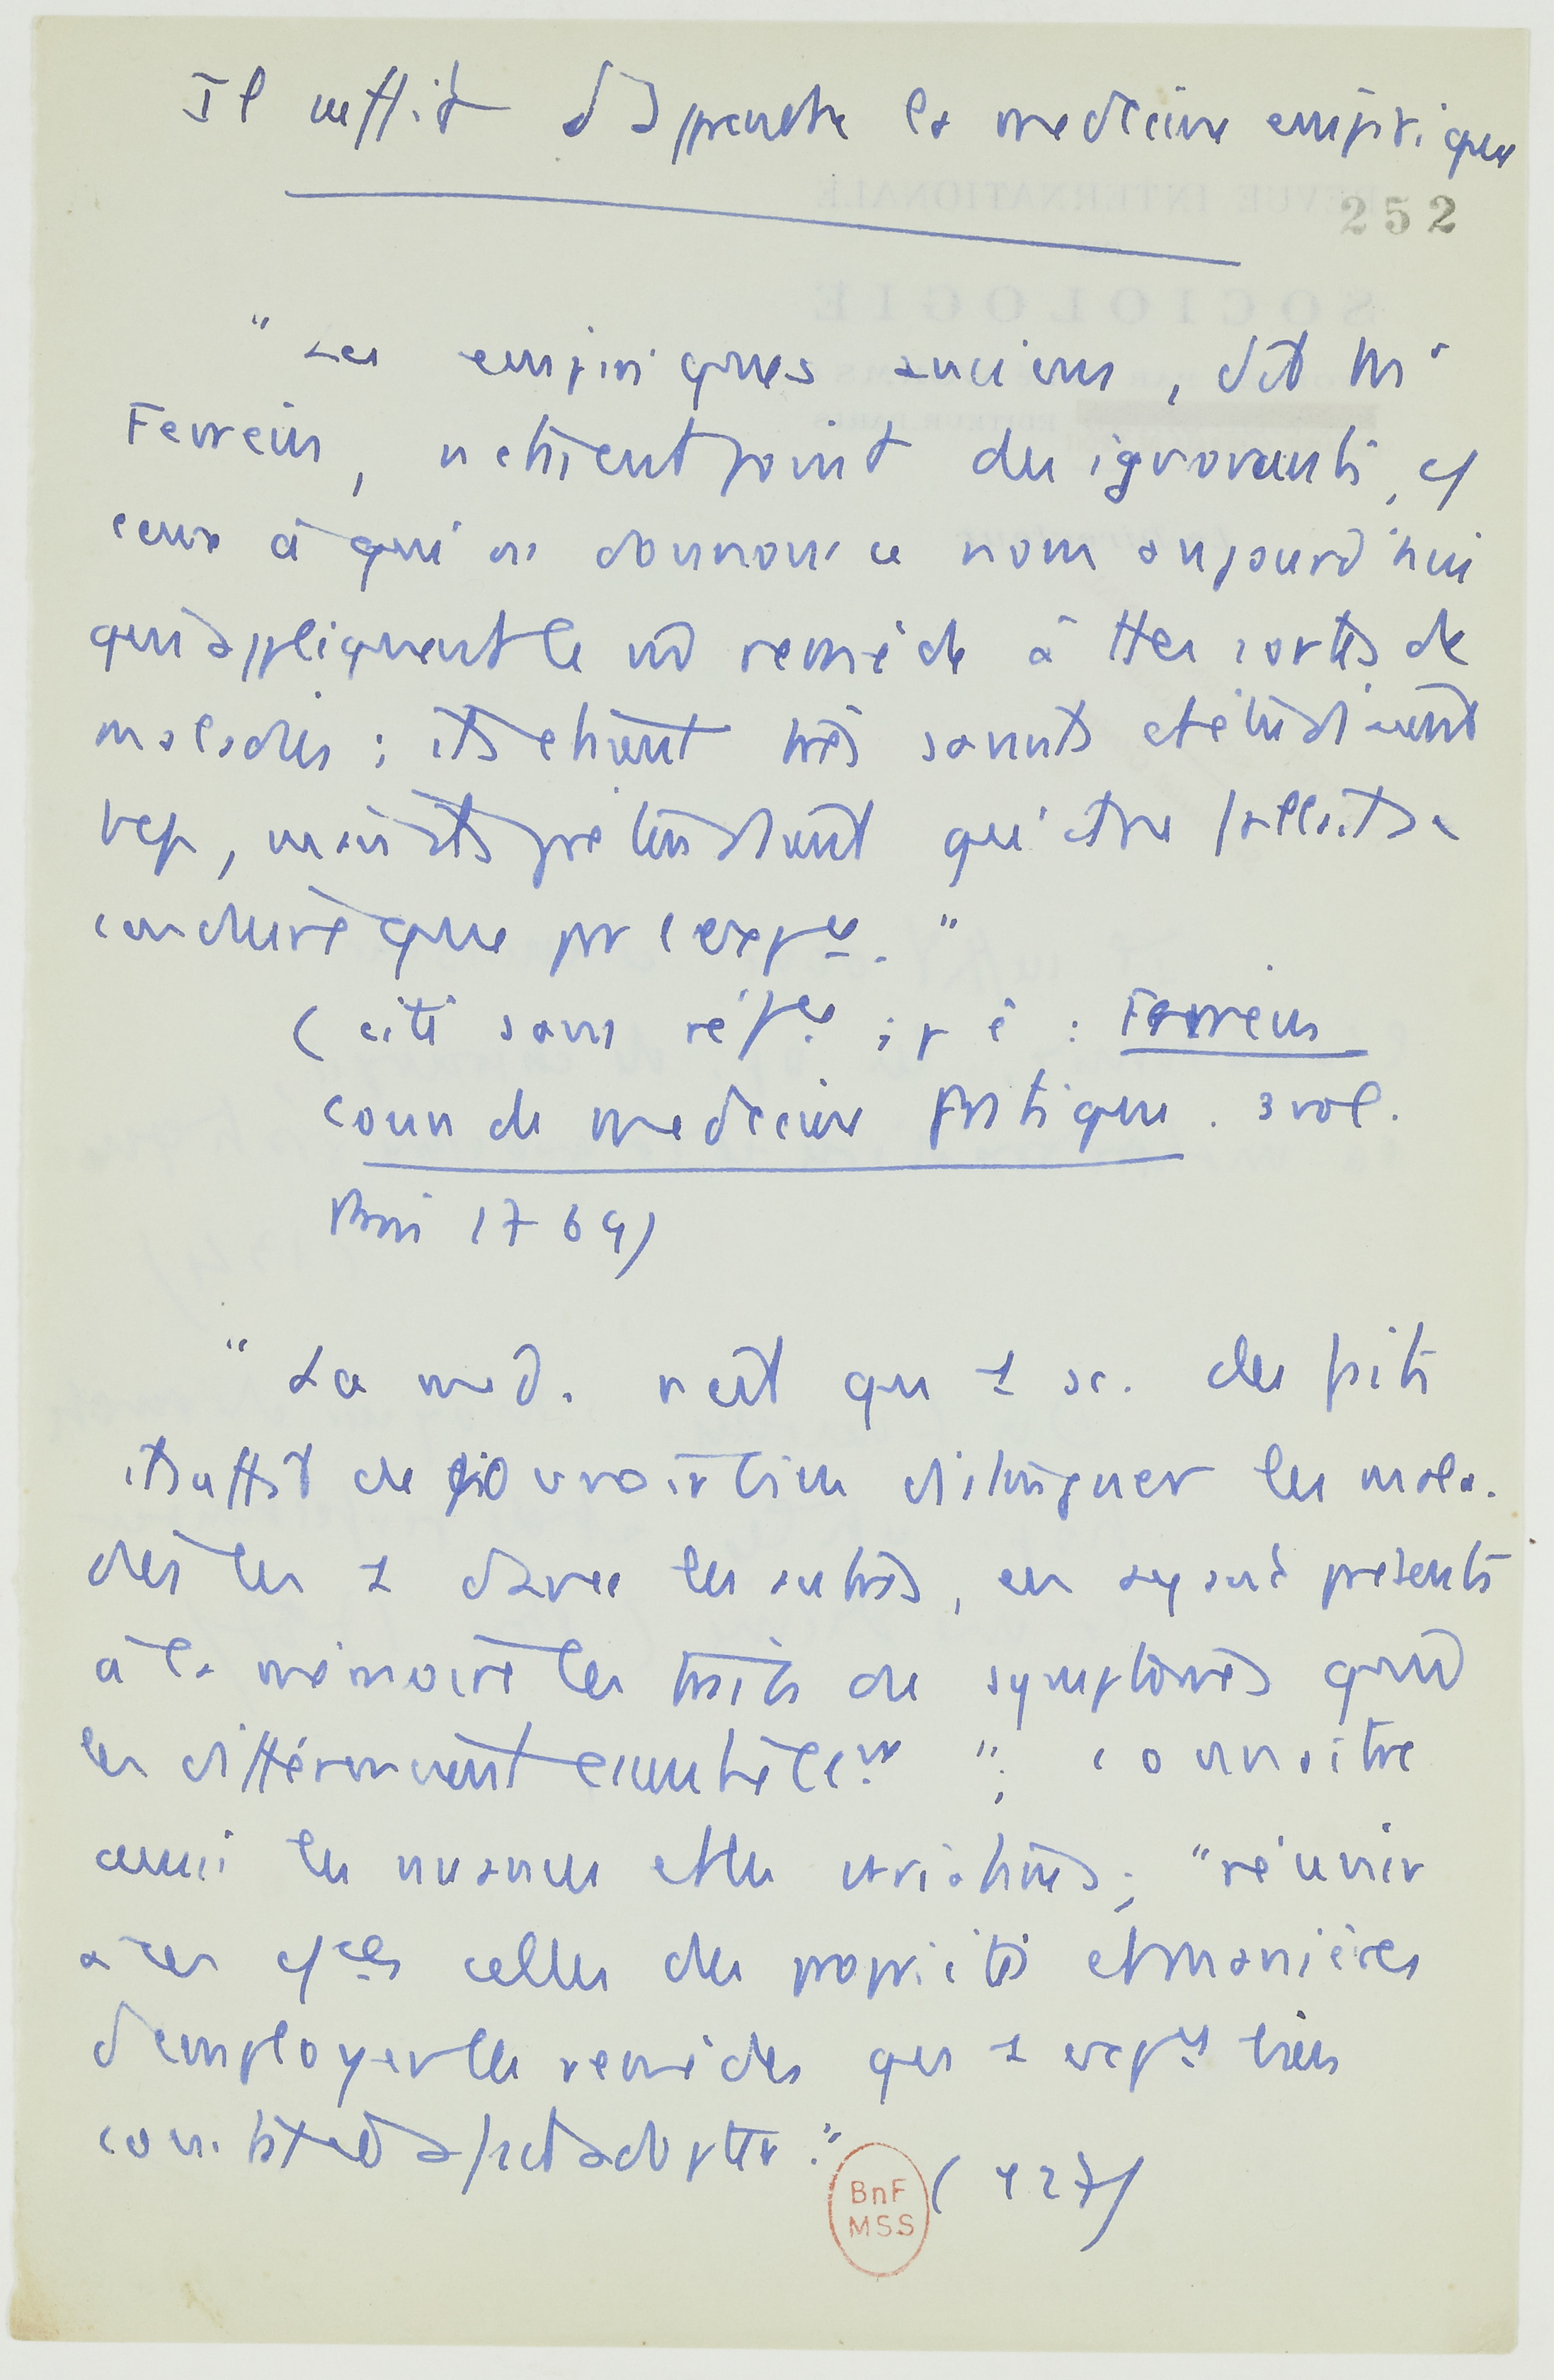 Il suffit d'apprendre la medecine empirique
252
"Les empiriques anciens, dit Mr
Ferrein, n'etaient point des ignorants, c/
ceux à qui ns donnons ce nom aujourd'hui
qui appliquent le m̂ remède à ttes sortes de
maladies; ils etaient très savants et étudiaient
bcp, mais ils prétendaient qu'il ne fallait se
conduire que pr l'expce."
(cité sans réfce; p ê : Ferrein
Cours de medecine pratique. 3 vol.
Paris 1764)
"La med. n'est qu'1 sc. de faits
il suffit de pouvoir bien distinguer les mala-
dies les 1 d'avec les autres, en ayant présents
à la mémoire les traits de symptômes qui
les différencient essentiellt"; connaitre
aussi les nuances et les variations; "réunir
a ces cces celles des propriétés et manières
d'employer les remèdes qu'1 expce bien
constatée a fait adopter."
(427)
BnF
MSS